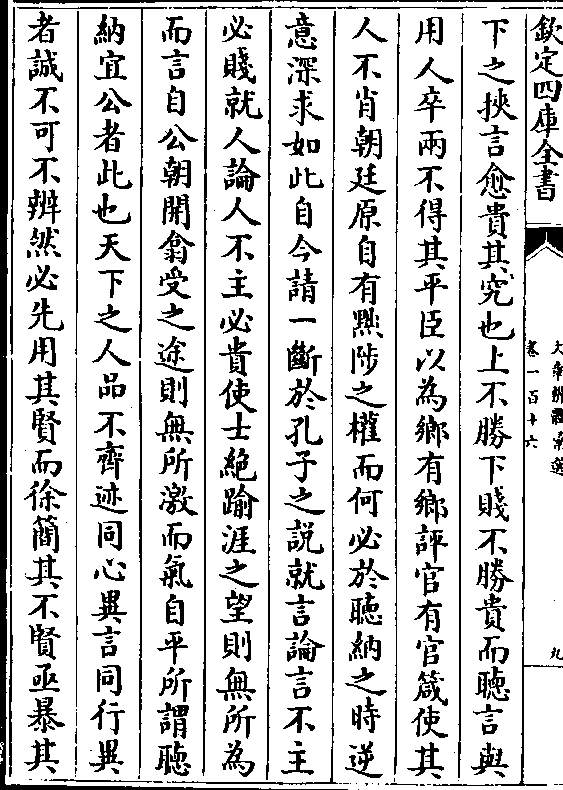 欽定四庫全書
卷一百十六
九
下之挾言愈貴其究也上不勝下賤不勝貴而聽言與
用人卒兩不得其平臣以為鄉有鄉評官有官箴使其
人不肖朝廷原自有黜陟之權而何必於聽納之時逆
意深求如此自今請一斷於孔子之說就言論言不主
必賤就人論人不主必貴使士絕踰涯之望則無所為
而言自公朝開翕受之途則無所激而氣自平所謂聽
納宜公者此也天下之人品不齊迹同心異言同行異
者誠不可不辨然必先用其賢而徐簡其不賢亟暴其